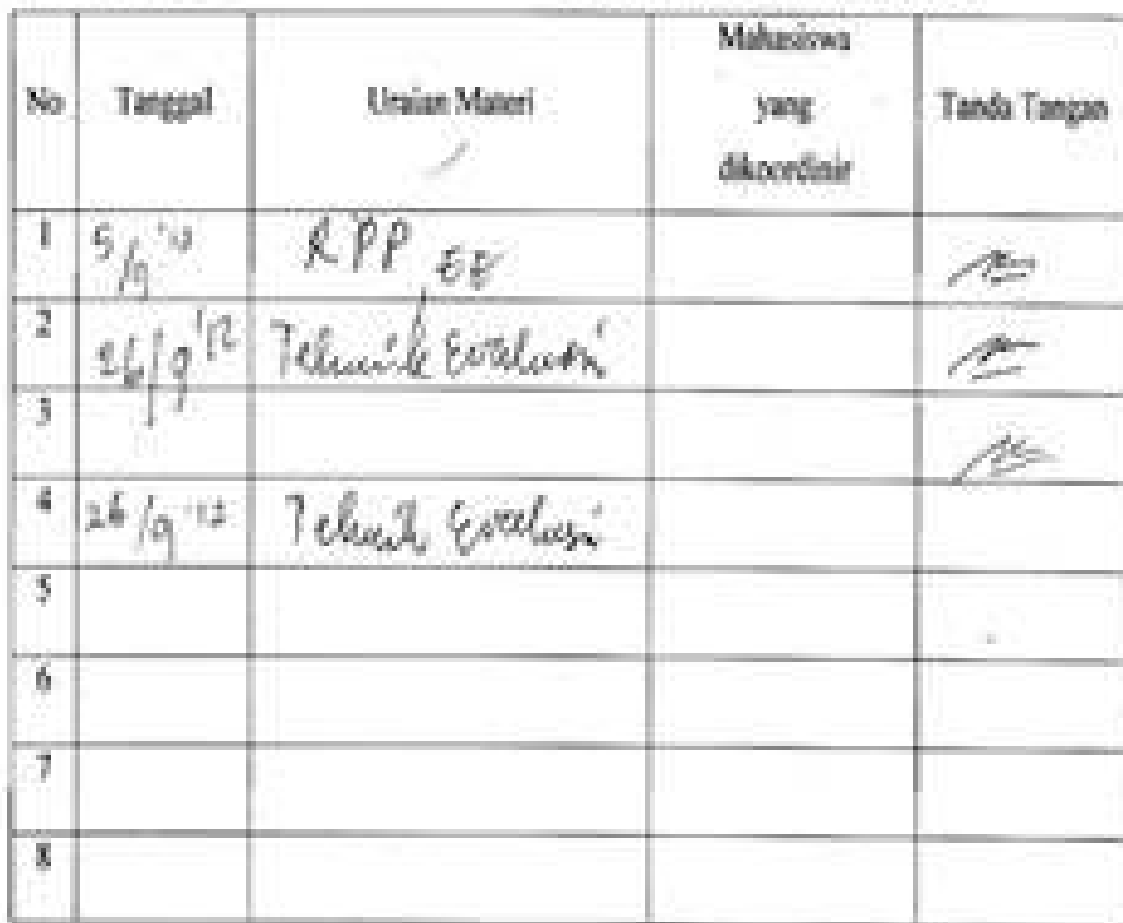 No Tanggal Uraian Materi Mahasiswa yang dikoordinir Tanda Tangan
1 RPP, EE
2 Tehnik Evaluasi
3
4 26/9 '12 Tehnik Evaluasi
5
6
7
8